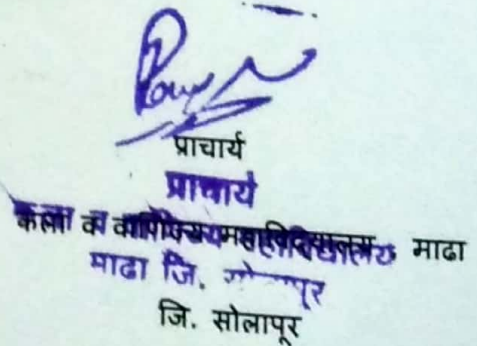 प्राचार्य
प्राचार्य
कला व वाणिज्य महाविद्यालय, माढा
माढा जि.
जि. सोलापूर